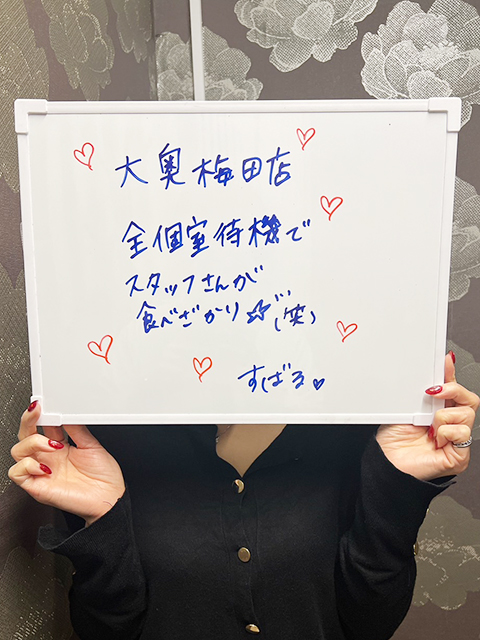 大奥梅田店
全個室待機で
スタッフさんが
食べざかり☆''(笑)
すばる♥